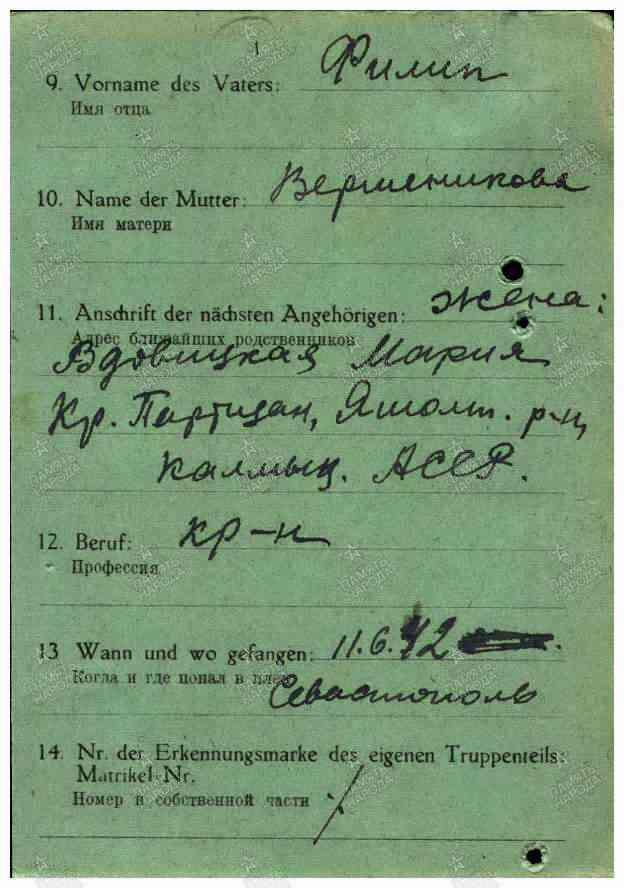 9. Vorname des Vaters: Филип
Имя отца
10. Name der Mutter: Вершеникова
Имя матери
11. Anschrift der nächsten Angehörigen: жена:
Адрес ближайших родственников
Вдовицкая Мария
Кр. Партизан, Яшолт. р-н,
Калмыц. АССР.
12. Beruf: кр-н
Профессия
13 Wann und wo gefangen: 11.6.42
Когда и где попал в плен
Севастополь
14. Nr. der Erkennungsmarke des eigenen Truppenteils:
Matrikel-Nr.
Номер в собственной части ./.
ПАМЯТЬ НАРОДА